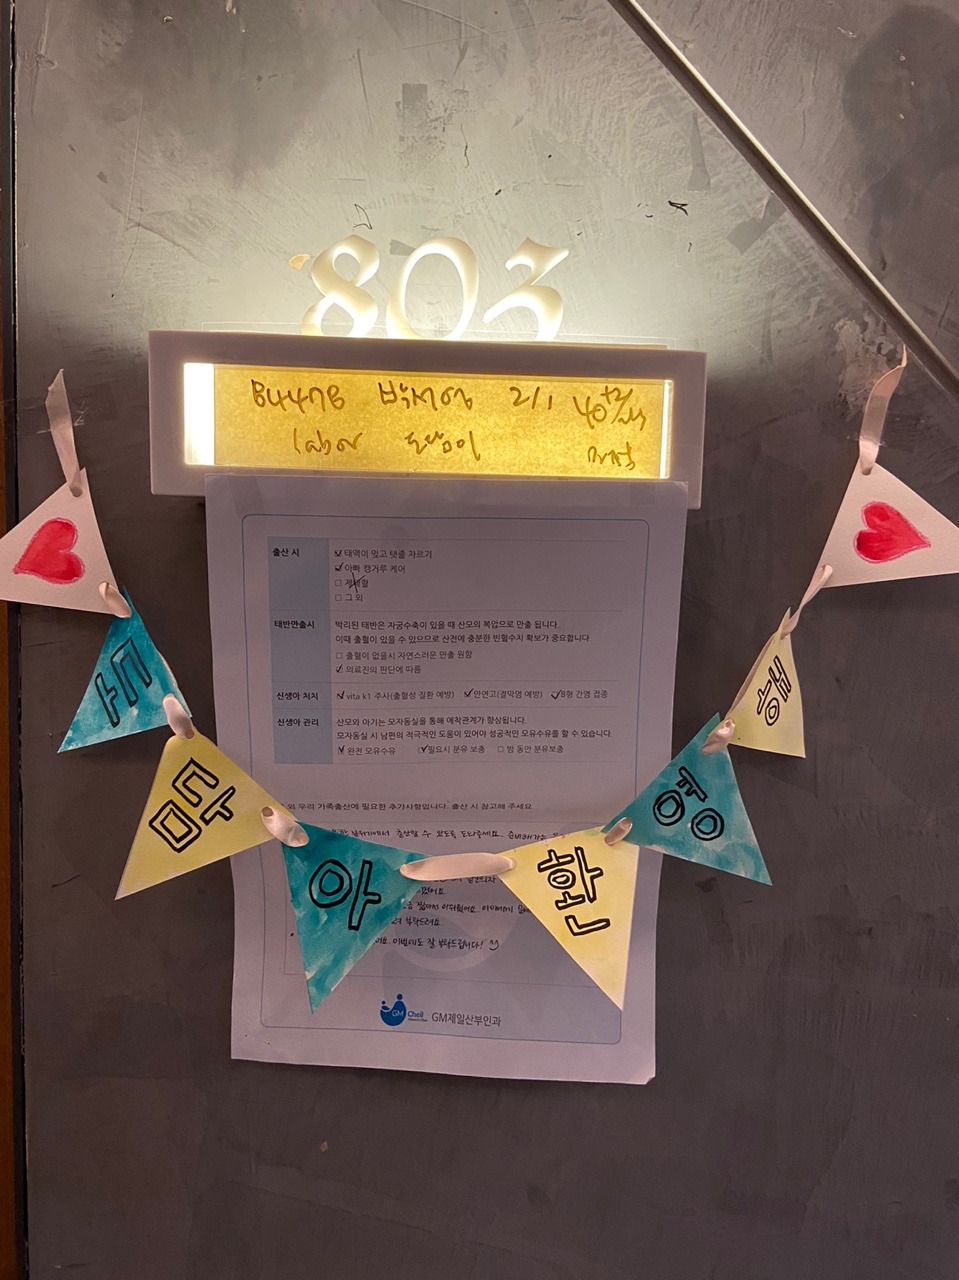 803
84478 박서영 2/1 40+2/wks
labor
출산 시
태맥이 멎고 탯줄 자르기
아빠 캥거루 케어
제대혈
그 외
태반만출시
박리된 태반은 자궁수축이 있을 때 산모의 복압으로 만출 됩니다.
이때 출혈이 있을 수 있으므로 산전에 충분한 빈혈수치 확보가 중요합니다
출혈이 없을시 자연스러운 만출 원함
의료진의 판단에 따름
신생아 처치
vita k1 주사(출혈성 질환 예방) 안연고(결막염 예방) B형 간염 접종
신생아 관리
산모와 아기는 모자동실을 통해 애착관계가 향상됩니다.
모자동실 시 남편의 적극적인 도움이 있어야 성공적인 모유수유를 할 수 있습니다.
완전 모유수유 필요시 분유 보충 밤 동안 분유보충
외 우리 가족출산에 필요한 추가사항입니다. 출산 시 참고해 주세요.
출산할 수 있도록 도와주세요.
부탁드려요
이번에도 잘 부탁드립니다!
GM Cheil GM제일산부인과
튼 담 아 환 영 해